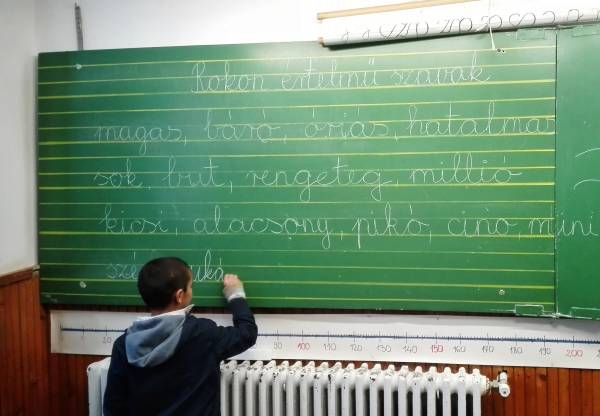 Rokon értelmű szavak
magas, báró, óriás, hatalmas
sok, but, rengeteg, millió
kicsi, alacsony, pikó, cino, mini
szé uká
20 90 100 110 120 130 140 150 160 170 180 190 200